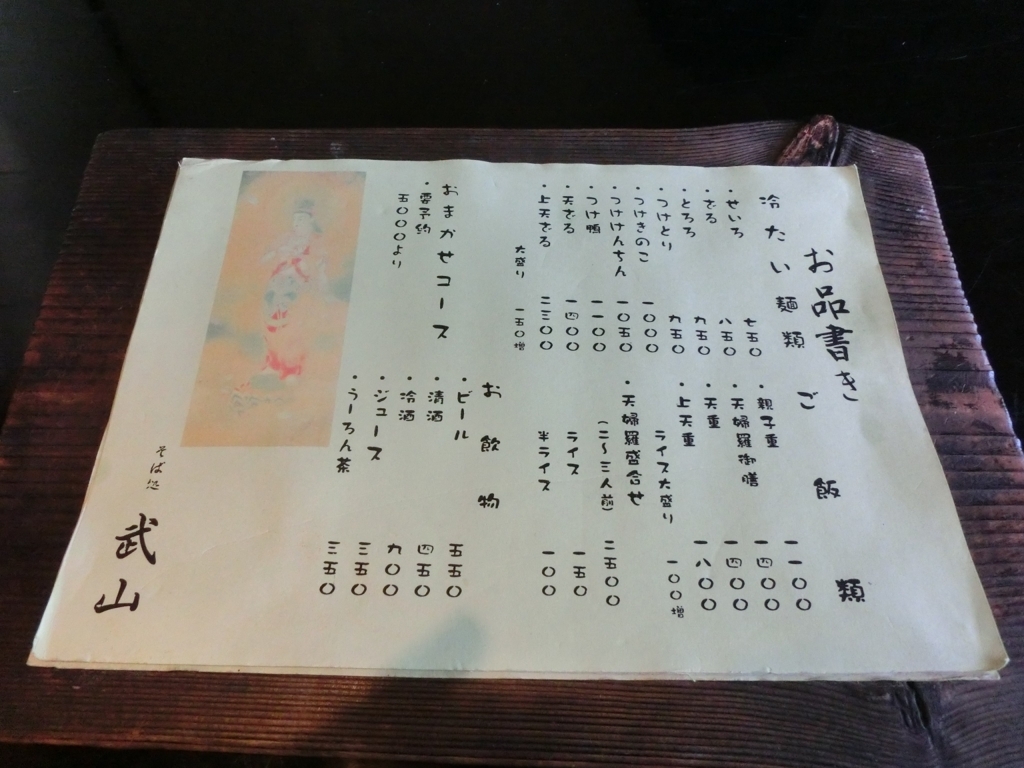 お品書き
冷たい麺類
・せいろ 七五〇
・ざる 八五〇
・とろろ 九五〇
・つけとり 九五〇
・つけきのこ 一〇〇〇
・つけけんちん 一〇五〇
・つけ鴨 一一〇〇
・天ざる 一四〇〇
・上天ざる 二三〇〇
大盛り 一五〇増
ご飯類
・親子重 一一〇〇
・天婦羅御膳 一四〇〇
・天重 一四〇〇
・上天重 一八〇〇
ライス大盛り 一〇〇増
・天婦羅盛合せ
(二〜三人前) 二五〇〇
ライス 一五〇
半ライス 一〇〇
おまかせコース
・要予約
五〇〇〇より
お飲物
・ビール 五五〇
・清酒 四五〇
・冷酒 九〇〇
・ジュース 三五〇
・うーろん茶 三五〇
そば処
武山